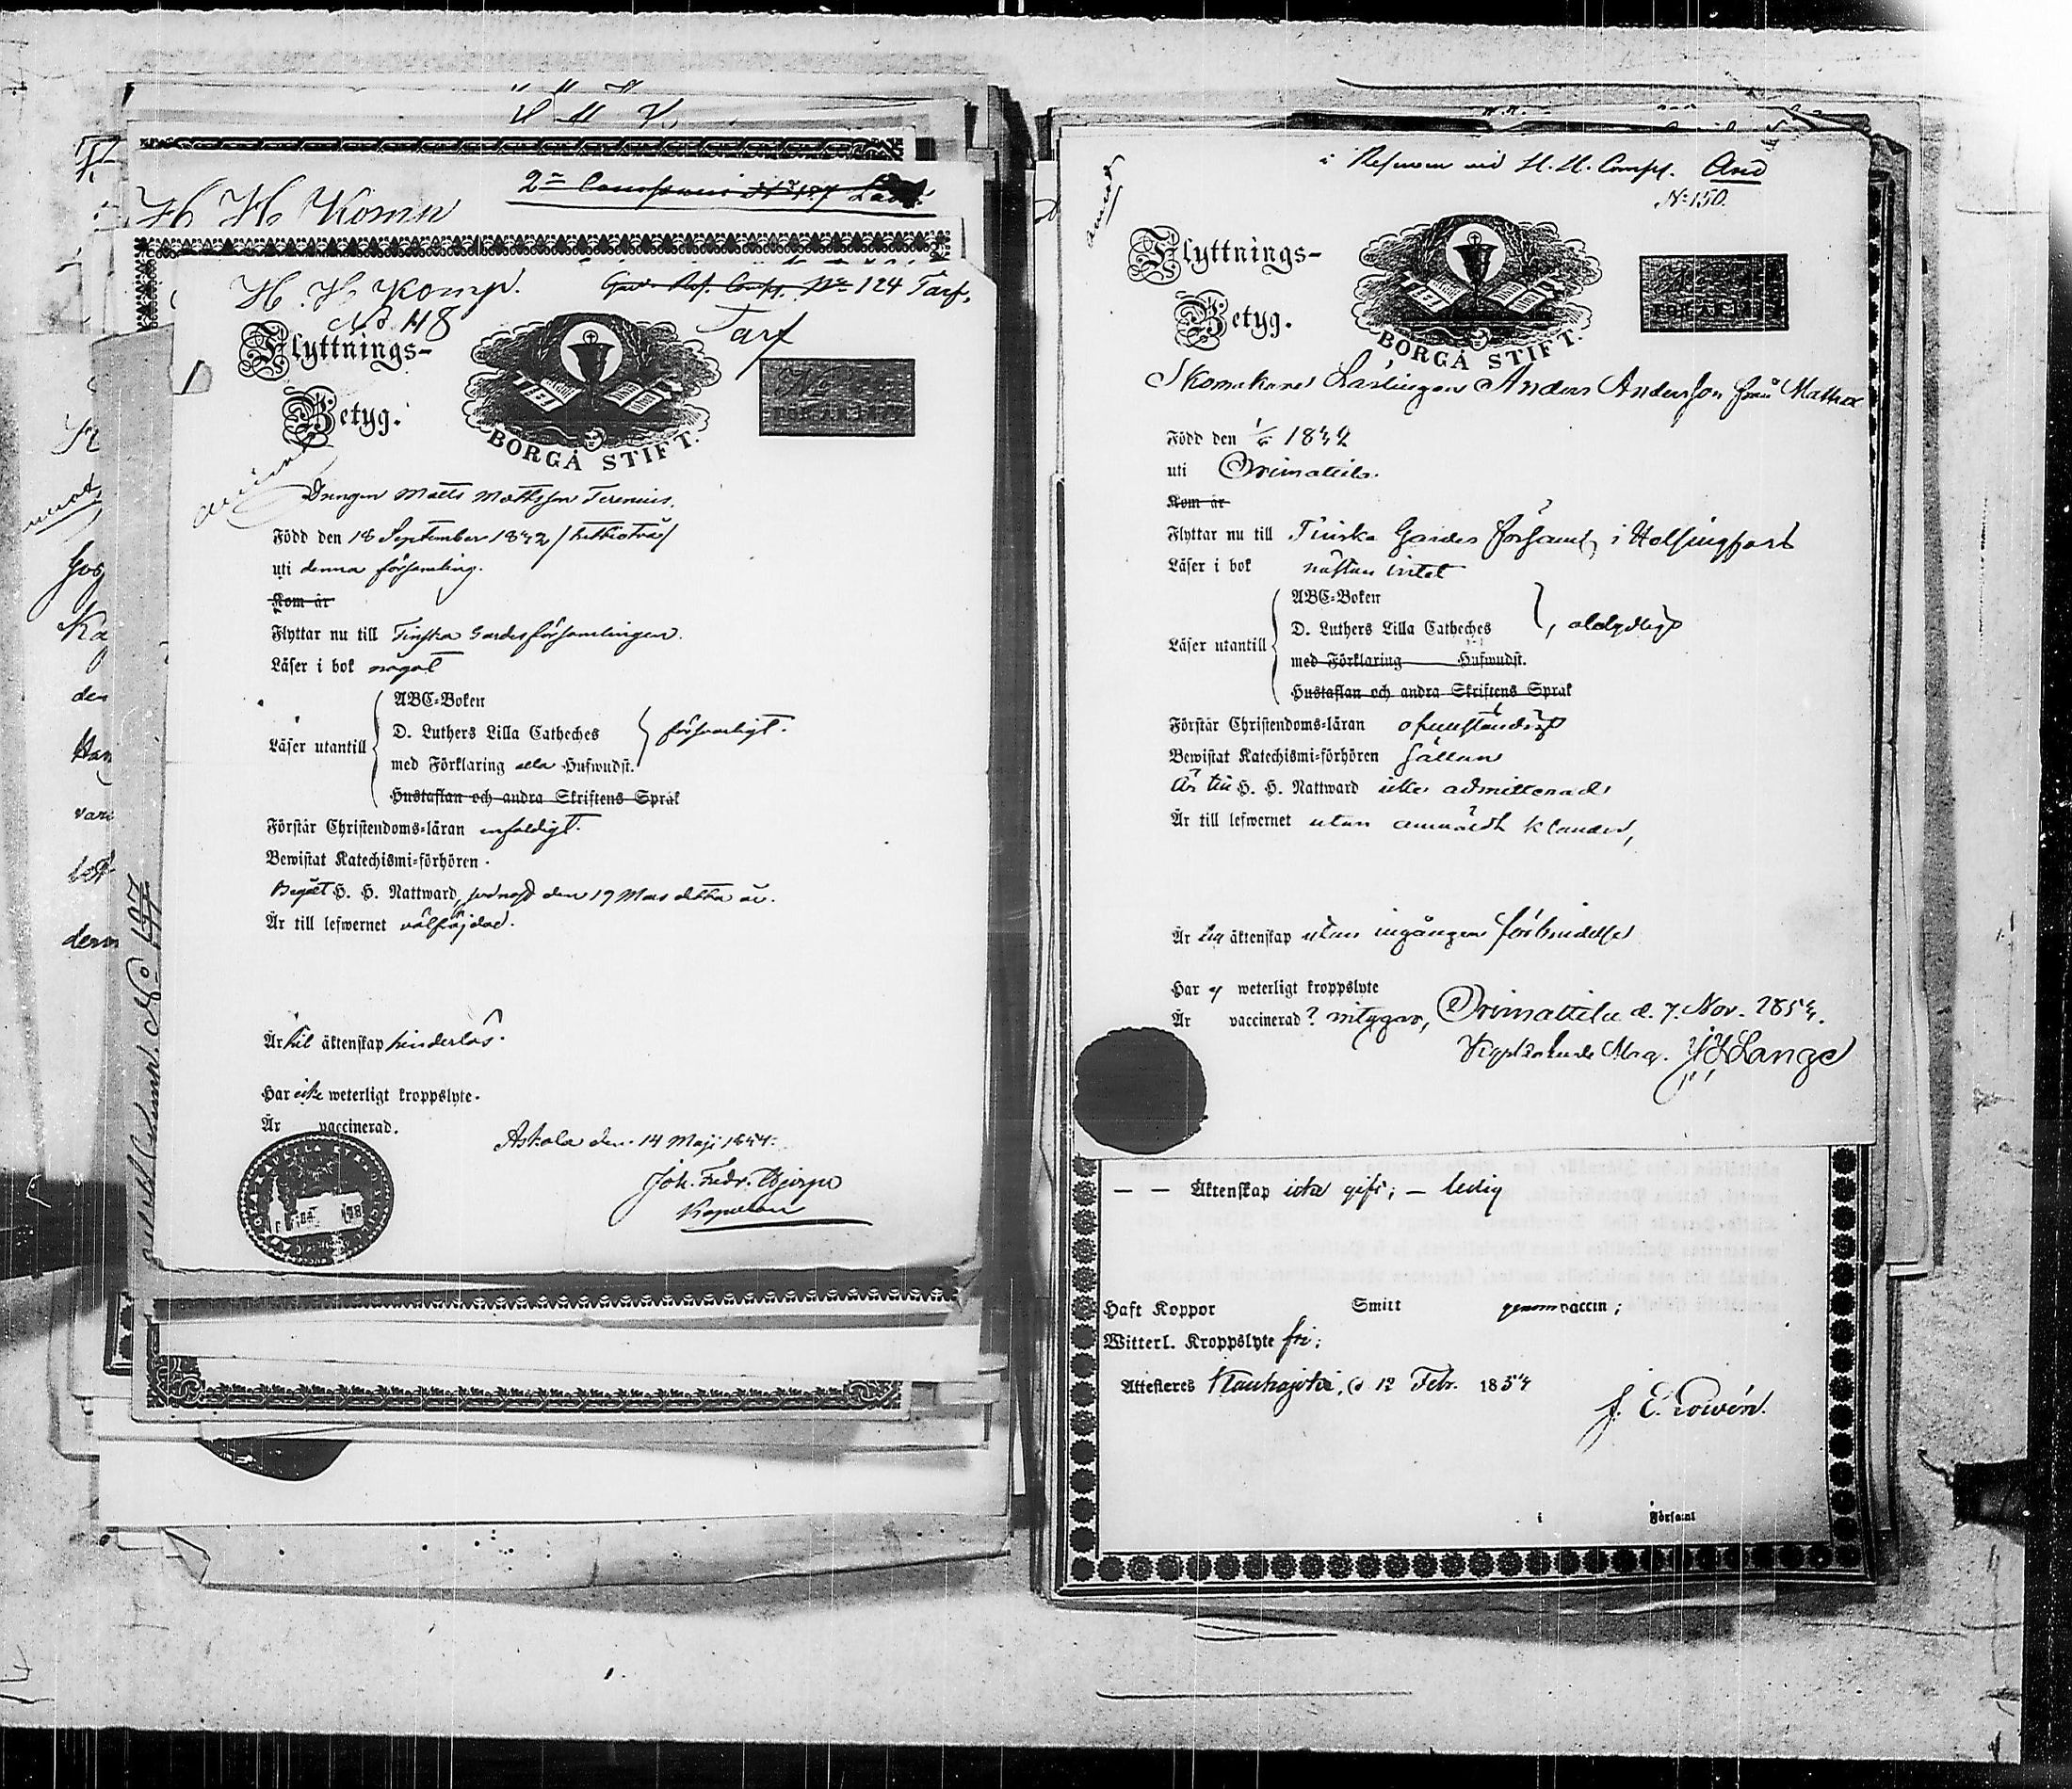 H. H. Komp.
N:o 118
Gard. Ref. Comp. No 124 Tarf.
Tarf
Flyttnings-
Betyg.
BORGÅ STIFT.
Drengen Matts Mattsson Terenius.
Född den 18 September 1832
uti denna församling.
Kom år
Flyttar nu till Finska Gardesförsamlingen.
Läser i bok något
ABC-Boken
Läser utantill
D. Luthers Lilla Catheches
försvarligt.
med Förklaring alla Hufwudst.
Hustaflan och andra Skriftens Språk
Förstår Christendoms-läran enfaldigt.
Bewistat Katechismi-förhören.
Begått H. H. Nattward, sednast den 19 Mars detta år.
Är till lefwernet välfräjdad.
Är till äktenskap hinderlös.
Har icke weterligt kroppslyte.
Är vaccinerad.
Askola den 14 Maji 1854.
Joh. Fedr.
Kapellan
H H Komp
i Reserven vid H. H. Comp. And
N:o 150.
Flyttnings-
Betyg.
BORGÅ STIFT.
Skomakare Lärlingen Anders Andersson från Mattila
Född den 1832
uti Orimattila.
Kom år
Flyttar nu till Finska Gardes församl, i Helsingfors
Läser i bok nästan intet
ABC-Boken
Läser utantill
D. Luthers Lilla Catheches
med Förklaring Hufwudst.
Hustaflan och andra Skriftens Språk
Förstår Christendoms-läran ofullständigt
Bewistat Katechismi-förhören sällan
Är till H. H. Nattward icke admitterad
Är till lefwernet utan anmärkt klander,
Är till äktenskap utan ingången förbindelse
Har ej weterligt kroppslyte
Är vaccinerad? intygar, Orimattila d. 7. Nov. 1854.
Lange
— — Äktenskap icke gift; — ledig
Haft Koppor Smitt genom vaccin;
Witterl. Kroppslyte fri;
Attesteres Kauhajoki, d 12 Febr. 1854
Församl